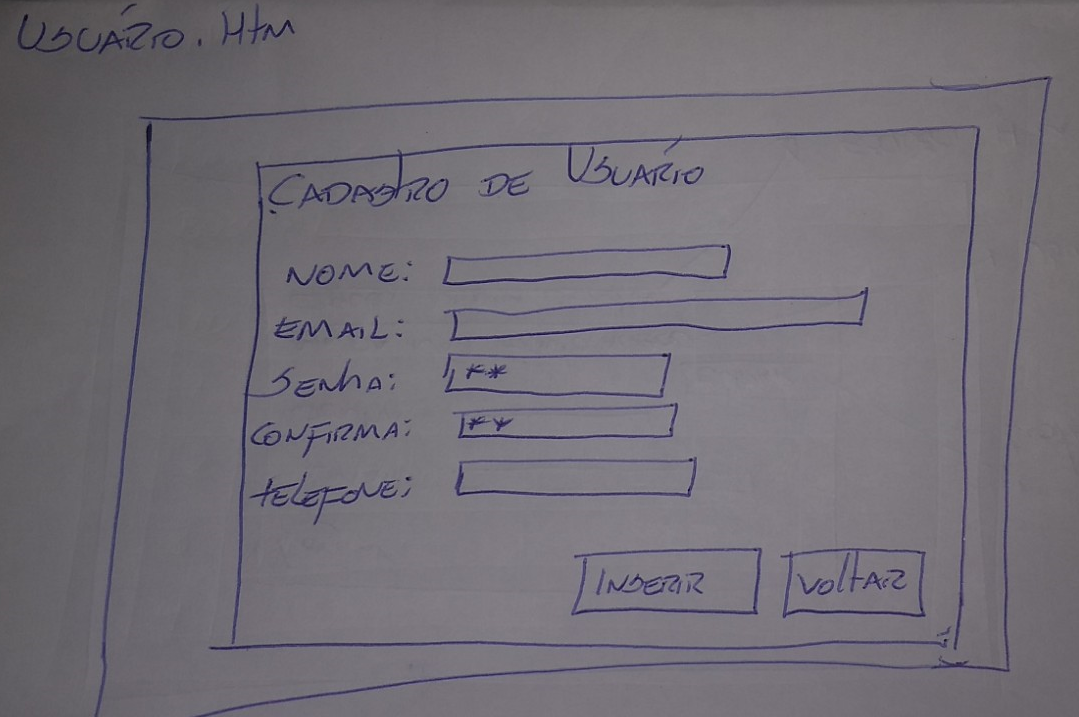 USUÁRIO.HtM
CADAStRO DE USUÁRIO
NOME:
EMAIL:
SENhA: ***
CONFIRMA: **
tELEFONE:
INSERIR VOltAR